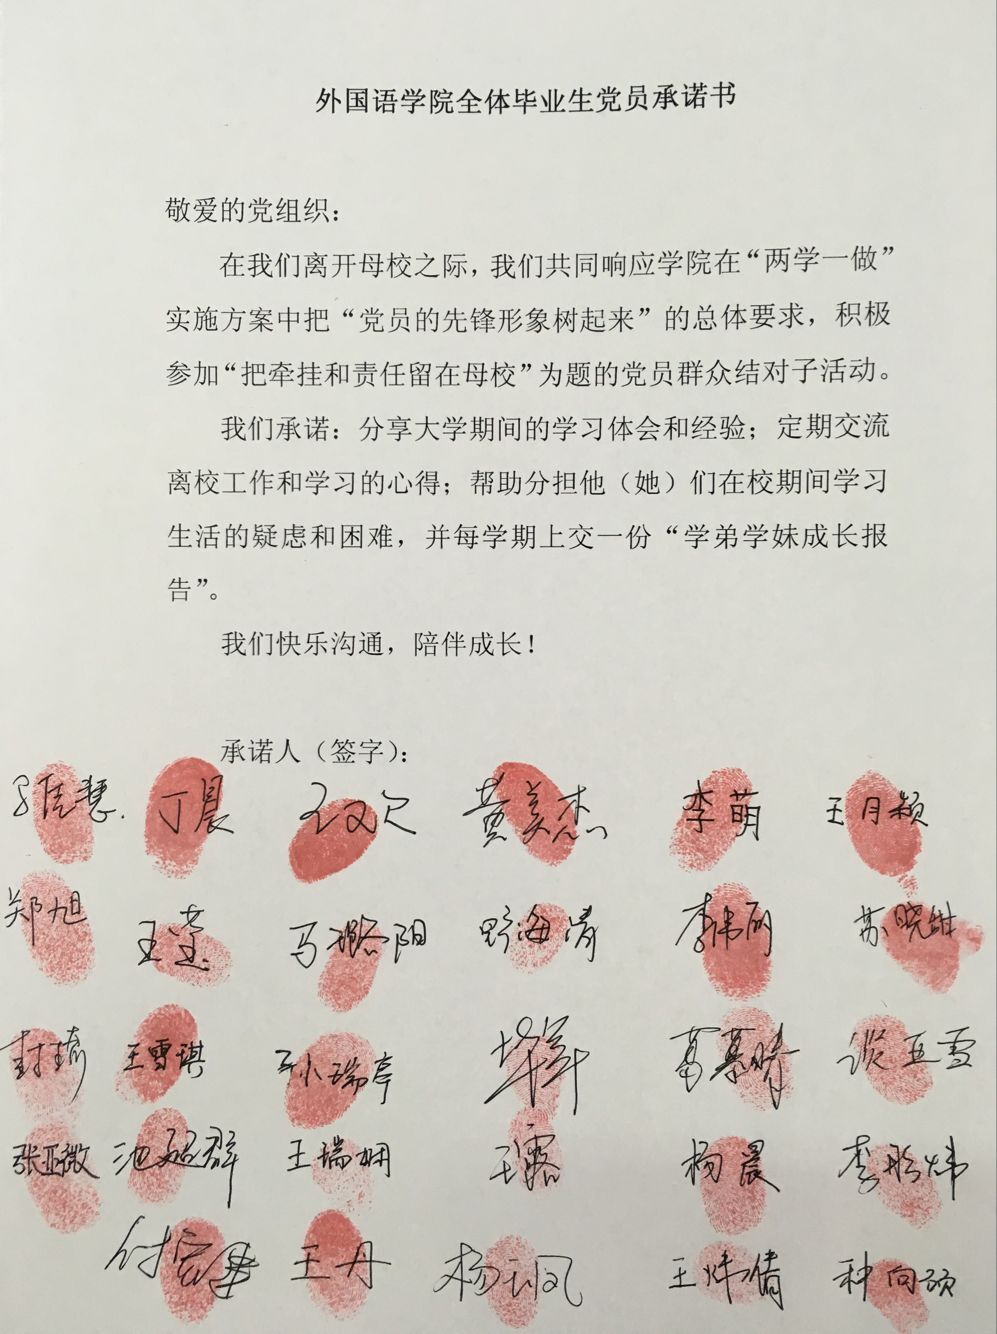 外国语学院全体毕业生党员承诺书
敬爱的党组织：
在我们离开母校之际，我们共同响应学院在“两学一做”
实施方案中把“党员的先锋形象树起来”的总体要求，积极
参加“把牵挂和责任留在母校”为题的党员群众结对子活动。
我们承诺：分享大学期间的学习体会和经验；定期交流
离校工作和学习的心得；帮助分担他（她）们在校期间学习
生活的疑虑和困难，并每学期上交一份“学弟学妹成长报
告”。
我们快乐沟通，陪伴成长！
承诺人（签字）：
丁晨 黄美杰 李萌 王月颖
郑旭 王莹 马璐阳 野海涛 苏晓甜
封琦 王雪琪 孙瑞亭 葛慕晴 谈亚雪
张亚微 池超群 王瑞娴 王露 杨晨 李彤炜
王丹 王炜倩 种向硕